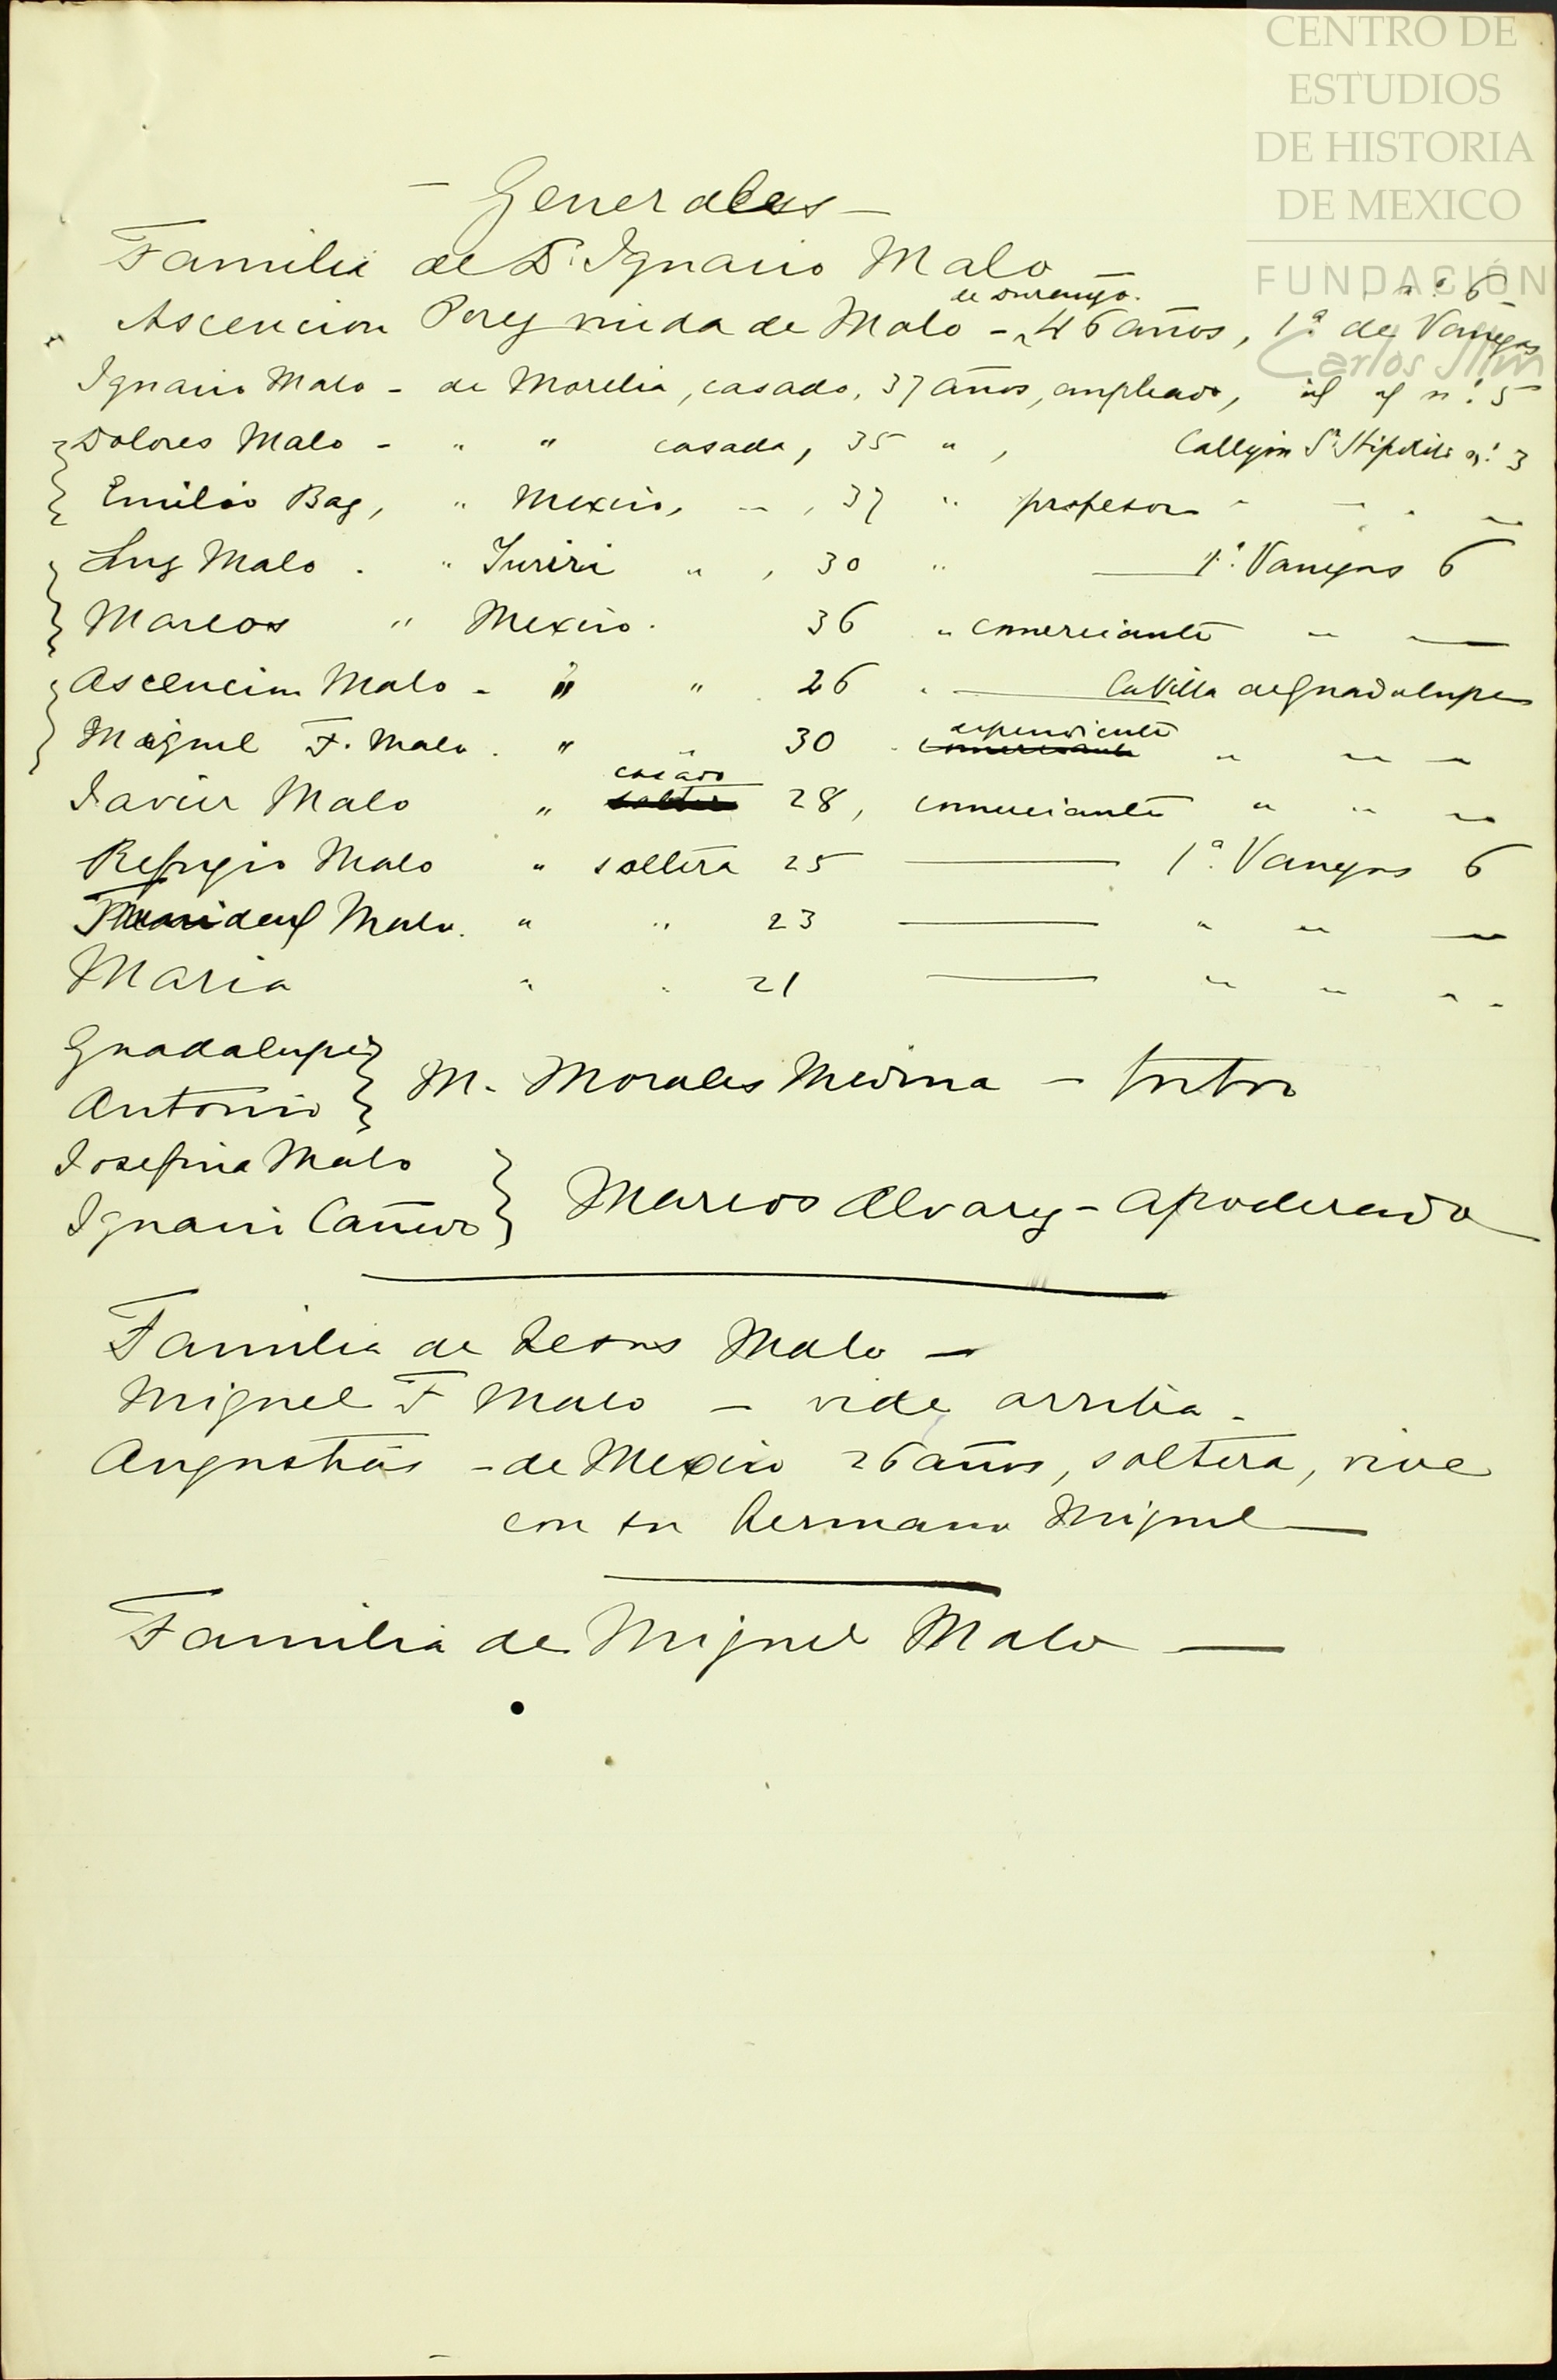 CENTRO DE
ESTUDIOS
DE HISTORIA
DE MEXICO
FUNDACIÓN
Carlos Slim
— Generales —
Familia de D. Ignacio Malo —
de Durango. n.º 6
Ascencion Perez viuda de Malo - 46 años, 1ª de Vanegas
Ignacio Malo - de Morelia, casado, 37 años, empleado, id id n.º 5
Dolores Malo - " " casada, 35 " , Callejon Sn. Hipolito n.º 3
Emilio Baz, " Mexico, " , 37 " profesor " " " "
Luz Malo . " Yuriri " , 30 " — 1ª. Vanegas 6
Marcos " Mexico . 36 " comerciante " —
Ascencion Malo - " " 26 " — La Villa de Guadalupe
dependiente
Miguel F. Malo . " " 30 . comerciante " " "
casado
Javier Malo " soltero 28, comerciante " " "
Refugio Malo " soltera 25 — 1ª. Vanegas 6
Malo. " " 23 — " " "
Maria " " 21 — " " " "
Guadalupe
Antonio } M. Morales Medina — tutor
Josefina Malo
Ignacio Cañedo } Marcos Alvarez - apoderado
Familia de Jesus Malo —
Miguel F Malo — vide arriba .
Angustias - de Mexico 26 años, soltera, vive
con su hermano Miguel —
Familia de Miguel Malo —